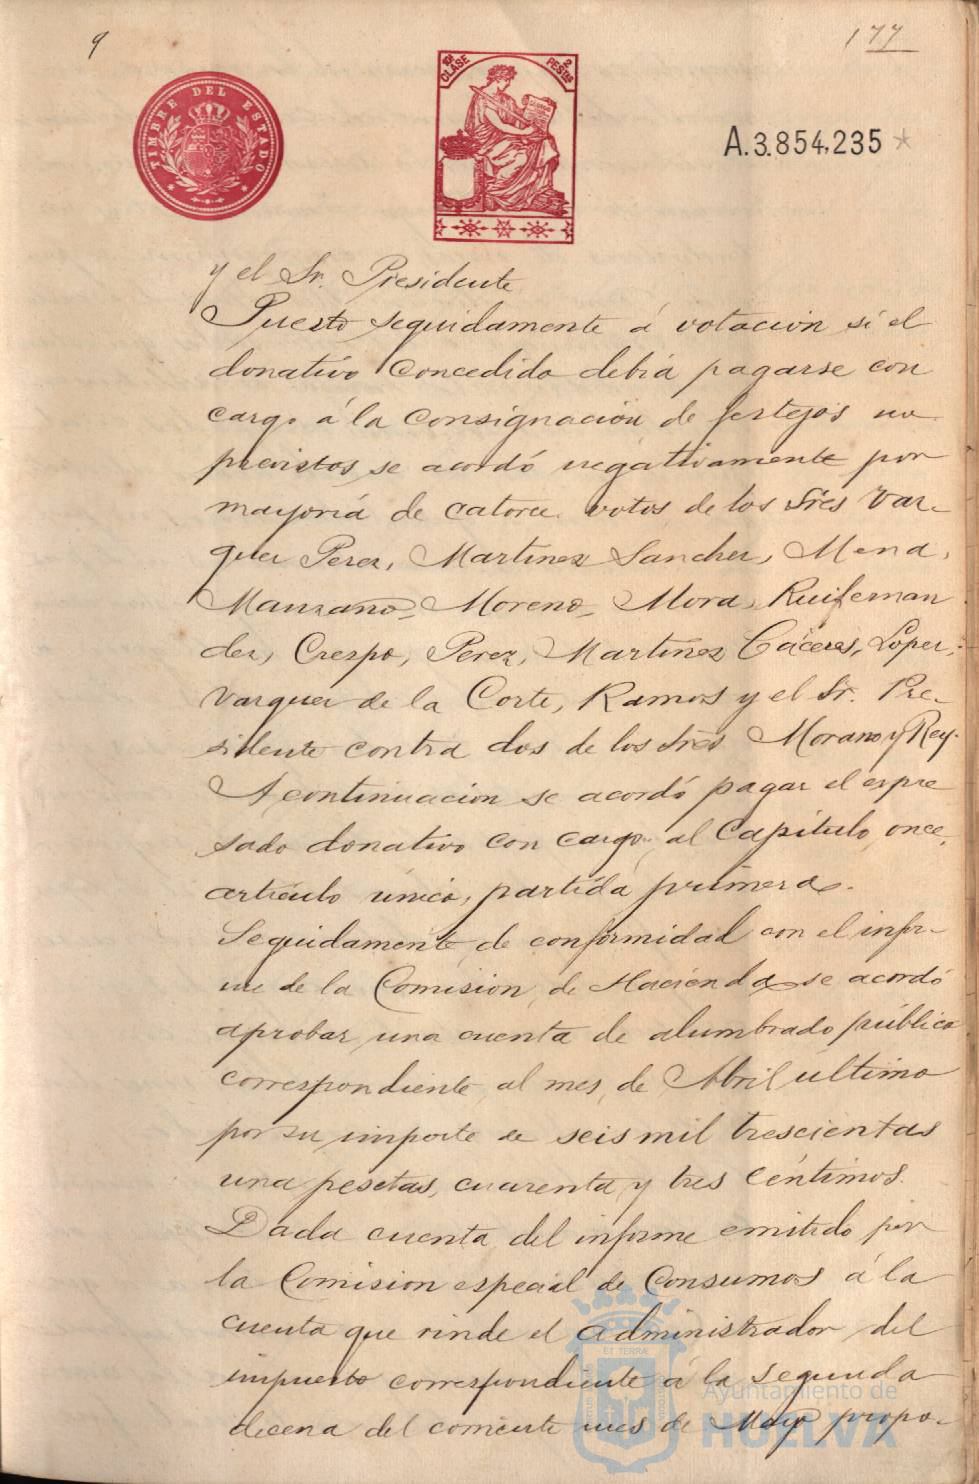 9
177
TIMBRE DEL ESTADO
10ª CLASE
2 PESTAS
A.3.854,235
y el Sr. Presidente
Puesto seguidamente á votación si el
donativo concedido debiá pagarse con
cargo á la consignación de festejos no
previstos se acordó negativamente por
mayoria de catorce votos de los Sres Var-
quez Perez, Martinez Sanchez, Mena,
Manzano, Moreno, Mora, Ruifernan
dez, Crespo, Perez, Martinez Cáceres, Lopez,
Varquez de la Corte, Ramos y el Sr. Pre-
sidente contra dos de los Sres Morano y Rey.
A continuacion se acordó pagar el espre
sado donativo con cargo al Capítulo once,
articulo único, partida primera.
Seguidamente de conformidad con el infor-
me de la Comision de Hacienda se acordó
aprobar una cuenta de alumbrado público
correspondiente al mes de Abril último
por su importe de seis mil trescientas
una pesetas, cuarenta y tres céntimos.
Dada cuenta del informe emitido por
la Comision especial de Consumos á la
cuenta que rinde el administrador del
impuesto correspondiente á la segunda
decena del corriente mes de Mayo propo-
ET TERRÆ
Ayuntamiento de
HUELVA